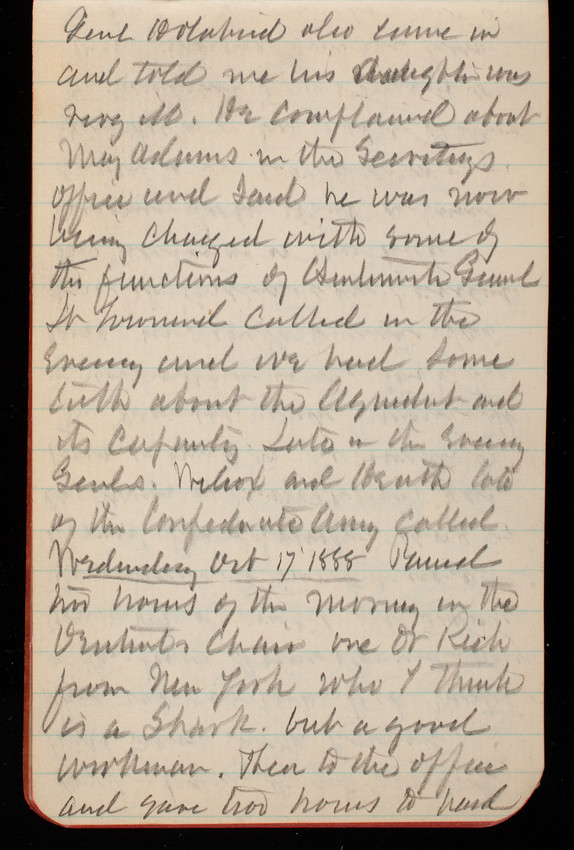 Genl Holabird also came in
and told me his daughter was
very ill. He complained about
Maj Adams in the Secretarys
office and said he was now
being charged with some of
the functions of Genl
Lt Townsend called in the
Evening and we had some
talk about the Aqueduct and
its capacity. Late in the Evening
Genls. Wilcox and Heath late
of the Confederate Army called.
Wednesday Oct 17 1888 Passed
two hours of the morning in the
Dentists Chair one Dr Rich
from New York who I think
is a Shark. but a good
workman. Then to the office
and gave two hours to hard